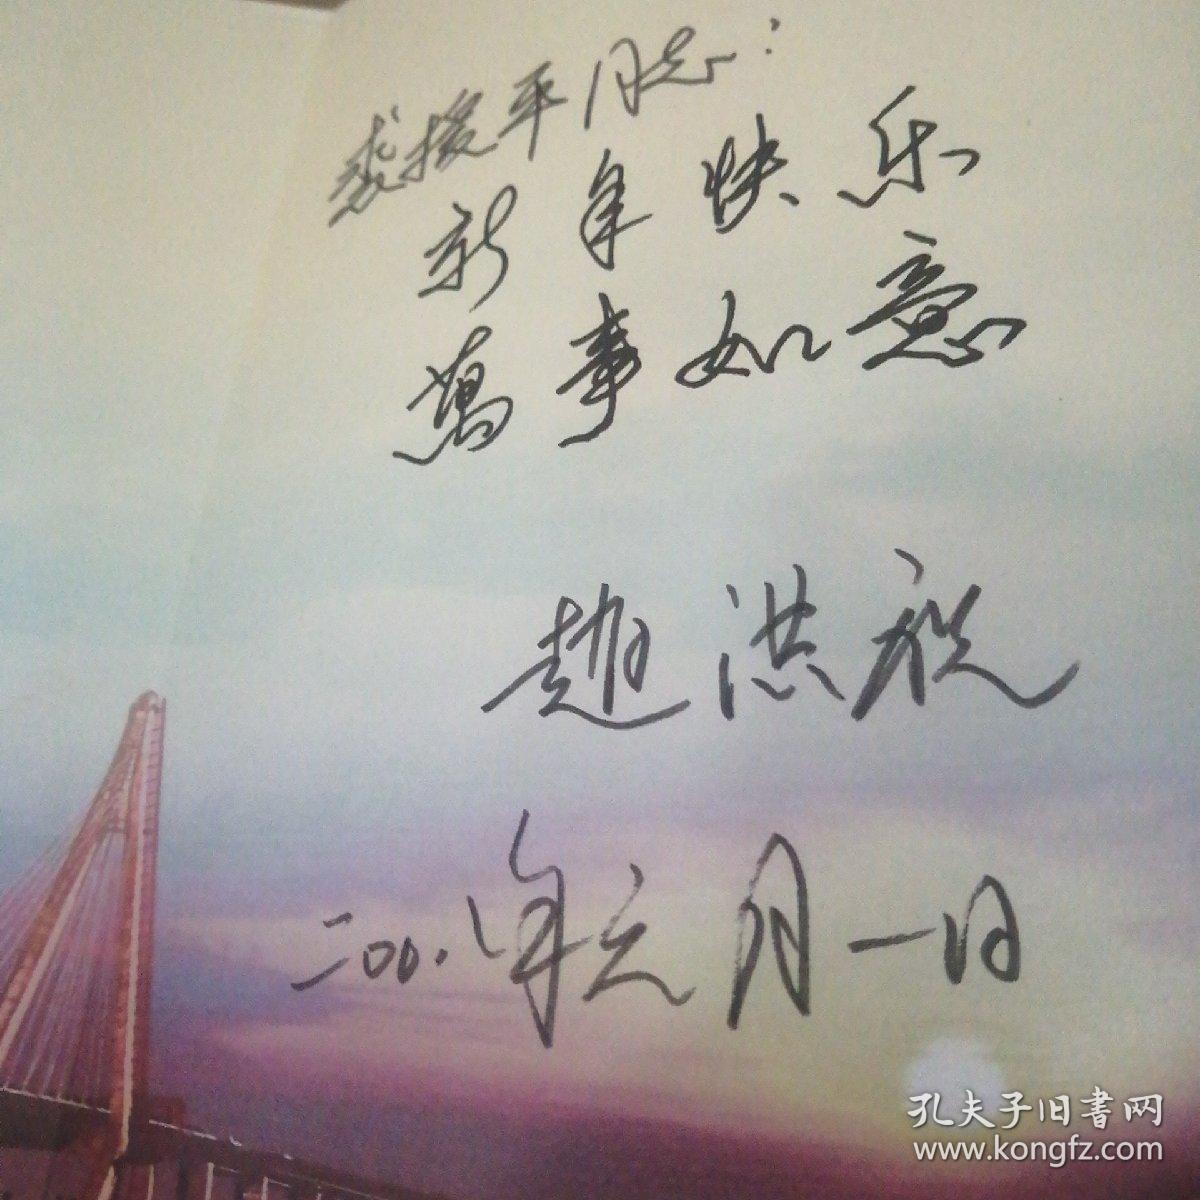 裘援平同志：
新年快乐
萬事如意
赵洪祝
二00八年元月一日
孔夫子旧書网
www.kongfz.com